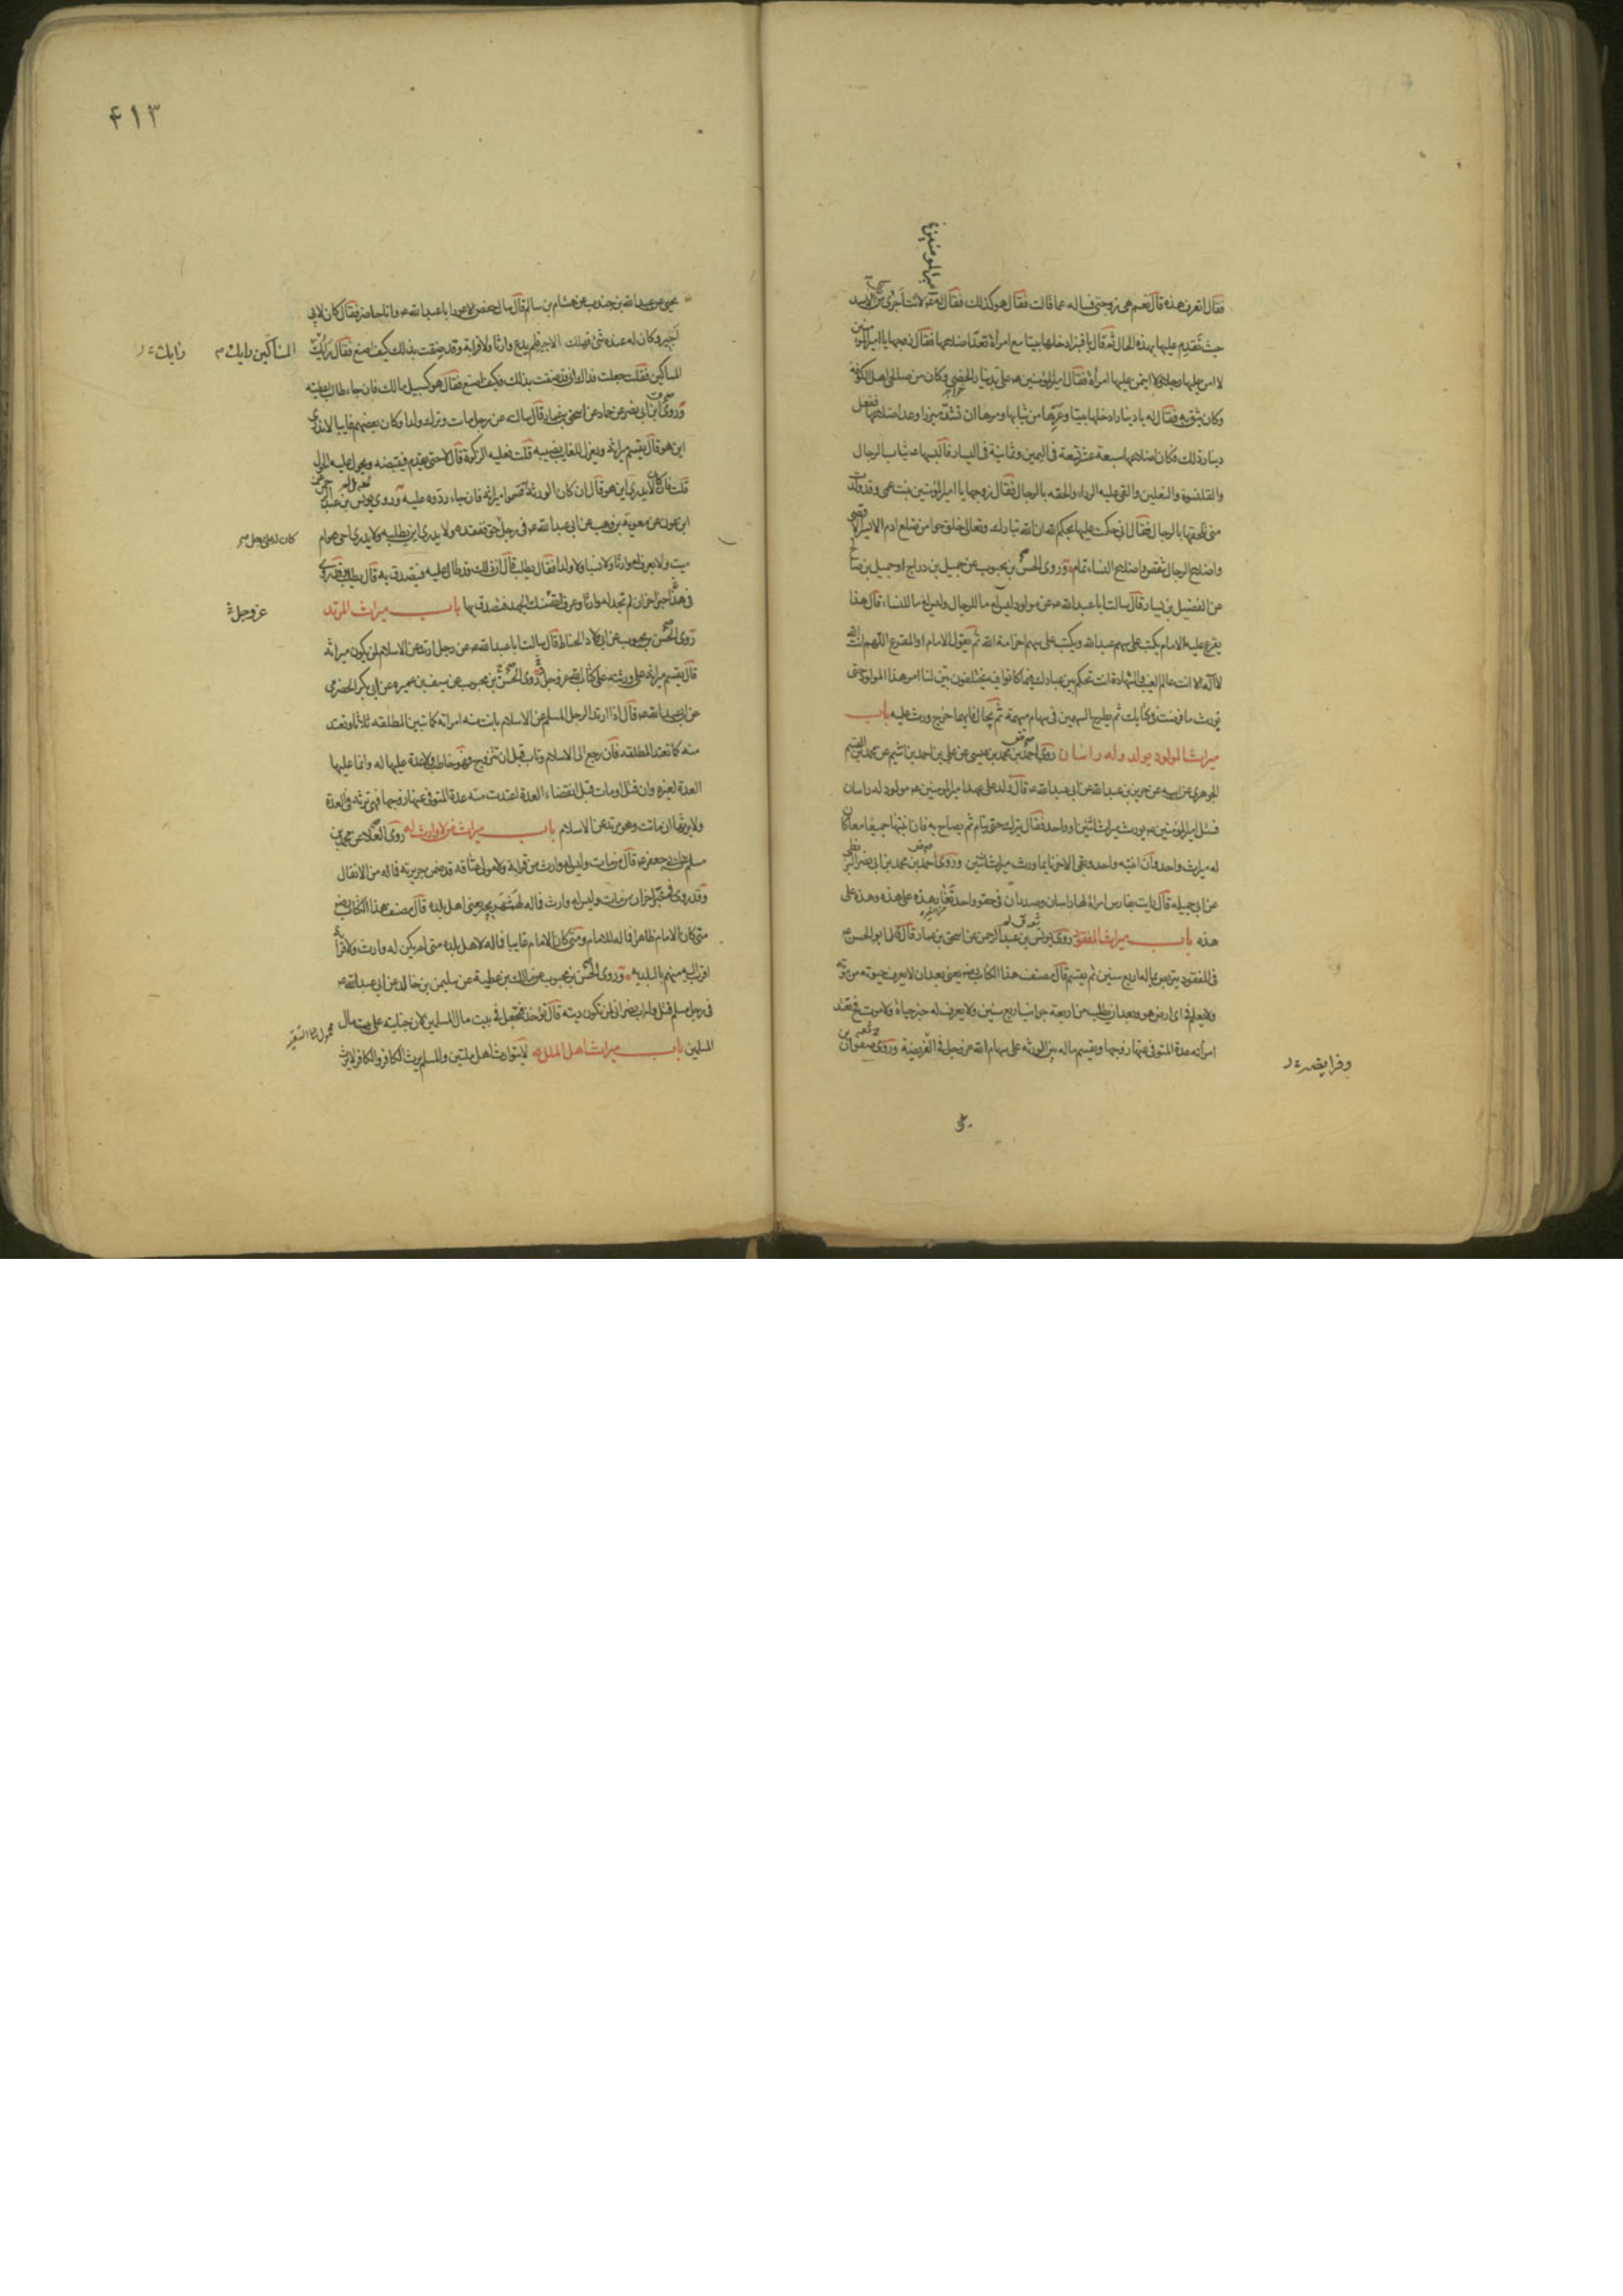 فقال اتعرف هذه قال نعم هى زوجتى فساله عما قالت فقال هو كذلك فقال له لانت اجرى من الاسد
حيث تقدم عليها بهذه الحال ثم قال يا قنبر ادخلها بيتا مع امرأة تعد اضلاعها فقال زوجها يا امير المؤمنين
لا امن عليها رجلا ولا ائتمن عليها امرأة فقال امير المؤمنين ع على بدينار الخصى وكان من صالحى اهل الكوفة
وكان يثق به فقال له يا دينار ادخلها بيتا وعرها من ثيابها ومرها ان تشد مئزرا وعد اضلاعها ففعل
دينار ذلك فكان اضلاعها سبعة عشر تسعة فى اليمين وثمانية فى اليسار فالبسها ع ثياب الرجال
والقلنسوة والنعلين والقى عليه الرداء والحقه بالرجال فقال زوجها يا امير المؤمنين بنت عمى وقد ولدت
منى تلحقها بالرجال فقال انى حكمت عليها بحكم الله ان الله تبارك وتعالى خلق حوا من ضلع ادم الايسر الاقصى
واضلاع الرجال تنقص واضلاع النساء تمام وروى الحسن بن محبوب عن جميل بن دراج او جميل بن صالح
عن الفضيل بن يسار قال سالت ابا عبد الله ع عن مولود ليس له ما للرجال وليس له ما للنساء قال هذا
يقرع عليه الامام يكتب على سهم عبد الله ويكتب على سهم اخر امة الله ثم يقول الامام او المقرع اللهم انت الله
لا اله الا انت عالم الغيب والشهادة انت تحكم بين عبادك فيما كانوا فيه يختلفون بين لنا امر هذا المولود حتى
يورث ما فرضت فى كتابك ثم يطرح السهمين فى سهام مبهمة ثم تجال فايهما خرج ورث عليه باب
ميراث المولود يولد وله راسان روى احمد بن محمد بن عيسى عن على بن احمد بن اشيم عن محمد بن القسم
الجوهرى عن ابيه عن حريز بن عبد الله عن ابى عبد الله ع قال ولد على عهد امير المؤمنين ع مولود له راسان
فسئل امير المؤمنين ع يورث ميراث اثنين او واحد فقال يترك حتى ينام ثم يصاح به فان انتبها جميعا معا كان
له ميراث واحد وان انتبه واحد وبقى الاخر نايما ورث ميراث اثنين وروى احمد بن محمد بن ابى نصر البزنطى
عن ابى جميله قال رايت بفارس امراة لها راسان وصدران فى حقو واحد تغار هذه على هذه وهذه على
هذه باب ميراث المفقود روى يونس بن عبد الرحمن عن اسحق بن عمار قال قال ابو الحسن ع
فى المفقود يتربص بماله اربع سنين ثم يقسم قال مصنف هذا الكتاب رضه يعنى بعد ان لا يعرف حيوته من موته
ولا يعلم فى اى ارض هو وبعد ان يطلب من اربعة جوانب اربع سنين ولا يعرف له خبر حياة ولا موت فح تعتد
امرأته عدة المتوفى عنها زوجها ويقسم ماله بين الورثة على سهام الله عز وجل فى الفريضة وروى صفوان بن
وفرايضه
امير المومنين ع
۴۱۳
يحيى عن عبد الله بن جندب عن هشام بن سالم قال سال حفص الاعور ابا عبد الله ع وانا حاضر فقال كان لابى
اجير وكان له عنده شئ فهلك الاجير فلم يدع وارثا ولا قرابة وقد ضقت بذلك كيف اصنع فقال رايك
المساكين رايك
المساكين فقلت جعلت فداك انى قد ضقت بذلك فكيف اصنع فقال هو كسبيل مالك فان جاء طالب اعطيته
وروى ابن ابى نصر عن حماد عن اسحق بن عمار قال سالته عن رجل مات وترك ولدا وكان بعضهم غايبا لا يدرى
اين هو قال يقسم ميراثه ويعزل للغايب نصيبه قلت فعليه الزكوة قال لا حتى يقدم فيقبضه ويحول عليه الحول
قلت فان كان لا يدرى اين هو قال ان كان الورثة ملاء اقتسموا ميراثه فان جاء ردوه عليه وروى يونس بن عبد الرحمن
ابن عون عن معوية بن وهب عن ابى عبد الله ع فى رجل حق ففقده ولا يدرى اين يطلبه ولا يدرى احى هو ام
كان له على رجل
ميت ولا يعرف له وارثا ولا نسبا ولا ولدا فقال يطلب قال ان ذلك قد طال عليه فيتصدق به قال يطلب وقد روى
فى هذا خبر اخر ان لم تجد له وارثا وعرف الله منك الجهد فتصدق بها باب ميراث المرتد
عز وجل
روى الحسن بن محبوب عن ابى ولاد الحناط قال سالت ابا عبد الله ع عن رجل ارتد عن الاسلام لمن يكون ميراثه
قال يقسم ميراثه على ورثته على كتاب الله عز وجل وروى الحسن بن محبوب عن سيف بن عميره عن ابى بكر الحضرمى
عن ابى عبد الله ع قال اذا ارتد الرجل المسلم عن الاسلام بانت منه امراته كما تبين المطلقه ثلاثا وتعتد
منه كما تعتد المطلقه فان رجع الى الاسلام وتاب قبل ان تتزوج فهو خاطب ولا عدة عليها له وانما عليها
العدة لغيره وان قتل او مات قبل انقضاء العدة اعتدت منه عدة المتوفى عنها زوجها فهى ترثه فى العدة
ولا يرثها ان ماتت وهو مرتد عن الاسلام باب ميراث من لا وارث له روى العلاء عن محمد بن
مسلم عن ابى جعفر ع قال من مات وليس له وارث من قرابة ولا مولى عتاقه قد ضمن جريرته فماله من الانفال
وقد روى فى خبر اخر ان من مات وليس له وارث فماله لهمشهريجه يعنى اهل بلده قال مصنف هذا الكتاب رضه
متى كان الامام ظاهرا فماله للامام ومتى كان الامام غايبا فماله لاهل بلده متى لم يكن له وارث ولا قرابة
اقرب اليه منهم بالبلديه وروى الحسن بن محبوب عن مالك بن عطية عن سليمن بن خالد عن ابى عبد الله ع
فى رجل مسلم قتل وله اب نصرانى لمن تكون ديته قال تؤخذ فتجعل فى بيت مال المسلمين لان جنايته على بيت مال
المسلمين باب ميراث اهل الملل لا يتوارث اهل ملتين والمسلم يرث الكافر والكافر لا يرث